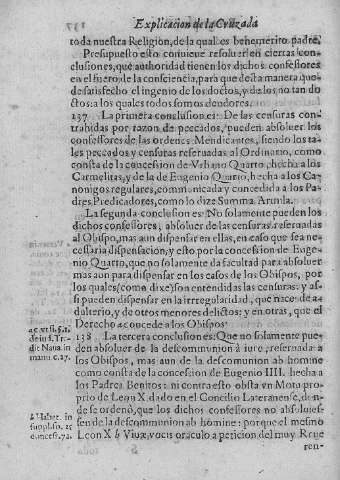 Explicacion de la Cruzada
toda nuestra Religion, de la qual es benemerito padre.
Presupuesto esto conuiene resoluer en ciertas con-
clusiones, què authoridad tienen los dichos confessores
en el fuero de la consciencia, para que desta manera que-
de satisfecho el ingenio de los doctos, y de los no tan do
ctos: a los quales todos somos deudores.
137 La primera conclusion es: De las censuras con-
trahidas por razon de peccados, pueden absoluer los
confessores de las ordenes Mendicantes, siendo los ta-
les peccados y censuras reseruadas al Ordinario, como
consta de la concession de Vrbano Quarto, hecha a los
Carmelitas, y de la de Eugenio Quarto, hecha a los Ca-
nonigos regulares, communicada y concedida a los Pa-
dres Predicadores, como lo dize Summa Armila.
La segunda conclusion es: No solamente pueden los
dichos confessores, absoluer de las censuras reseruadas
al Obispo, mas aun dispensar en ellas, en caso que sea ne-
cessaria dispensacion, y esto por la concession de Euge-
nio Quarto, que no solamente da facultad para absoluer
mas aun para dispensar en los casos de los Obispos, por
los quales (como dixe) son entendidas las censuras: y assi
pueden dispensar en la irregularidad, que nace de a-
dulterio, y de otros menores delictos: y en otras, que el
Derecho a concede a los Obispos.
138 La tercera conclusion es: Que no solamente pue-
den absoluer de la descomunion à iure, reseruada a
los Obispos, mas aun de la descomunion ab homine
como consta de la concession de Eugenio IIII. hecha a
los Padres Benitos: ni contra esto obsta vn Motu pro-
prio de Leon X. dado en el Concilio Lateranense, don-
de se ordenò, que los dichos confessores no absoluies-
sen de la descomunion ab homine: porque el mesmo
Leon X b Viuæ vocis oraculo a peticion del muy Rrue
ren-
in manu c. 27.
b Habet. in